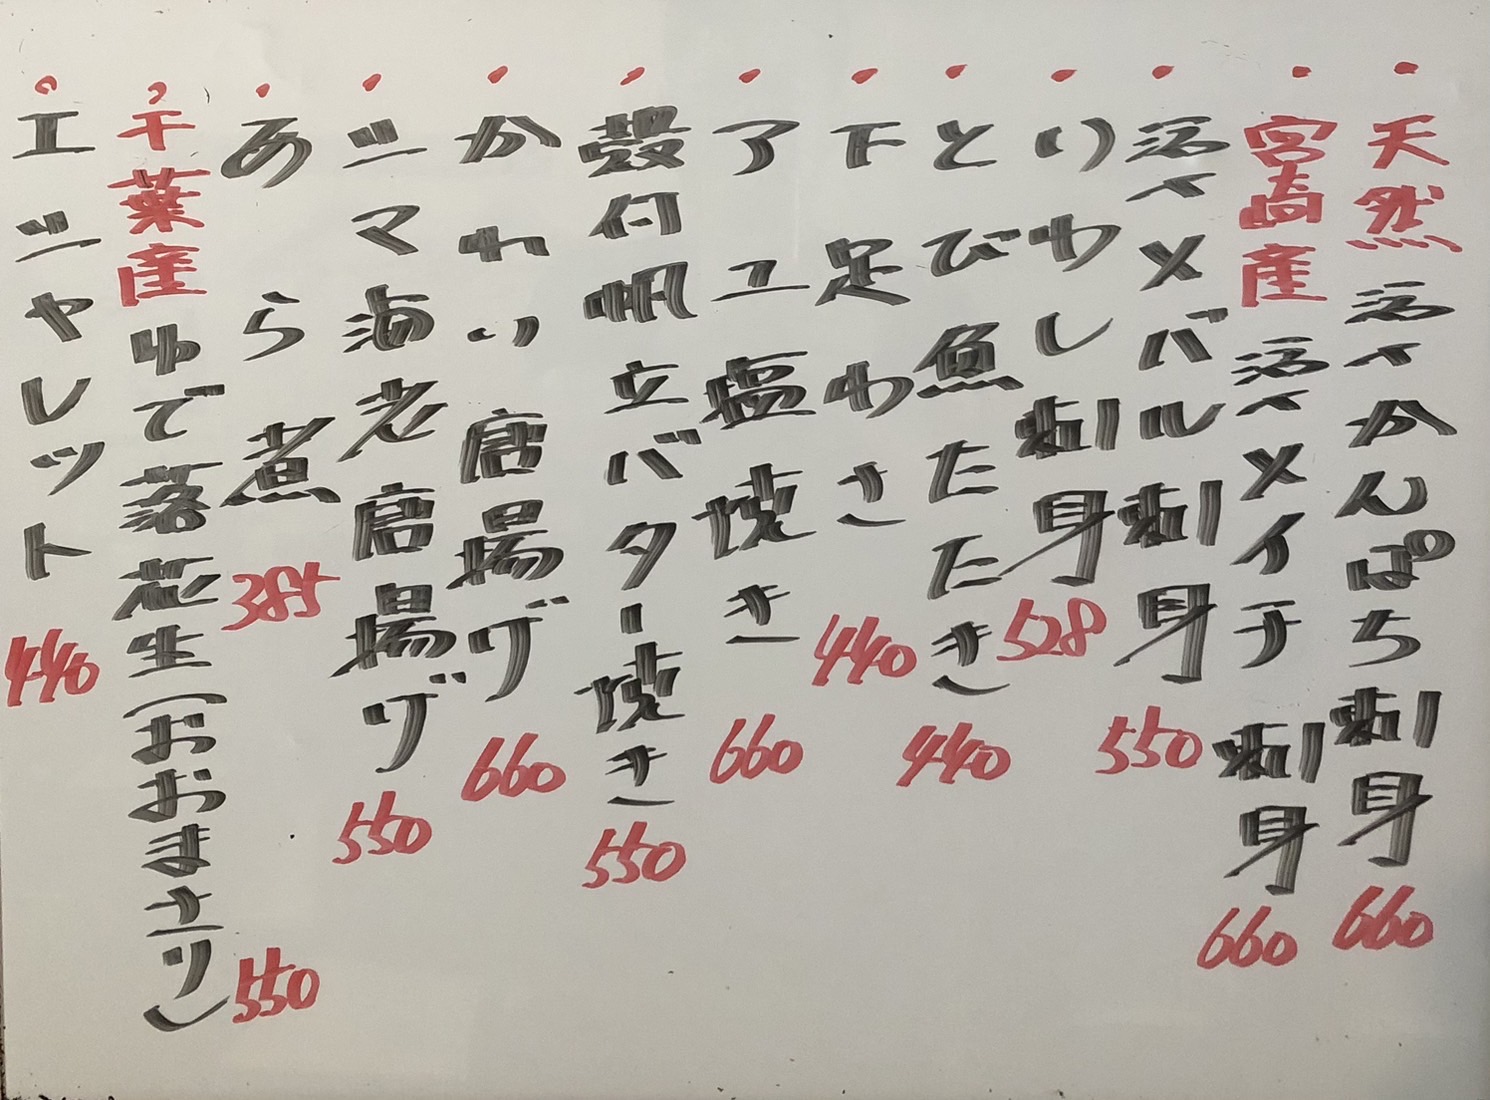 ・天然活〆かんぱち刺身 660
・宮崎産活〆メイチ刺身 660
・活〆メバル刺身 550
・いわし刺身 528
・とび魚たたき 440
・下足わさ 440
・アユ塩焼き 660
・殻付帆立バター焼き 550
・かわり唐揚げ 660
・シマ海老唐揚げ 550
・あら煮 385
・千葉産ゆで落花生(おおまさり) 550
・エシャレット 440